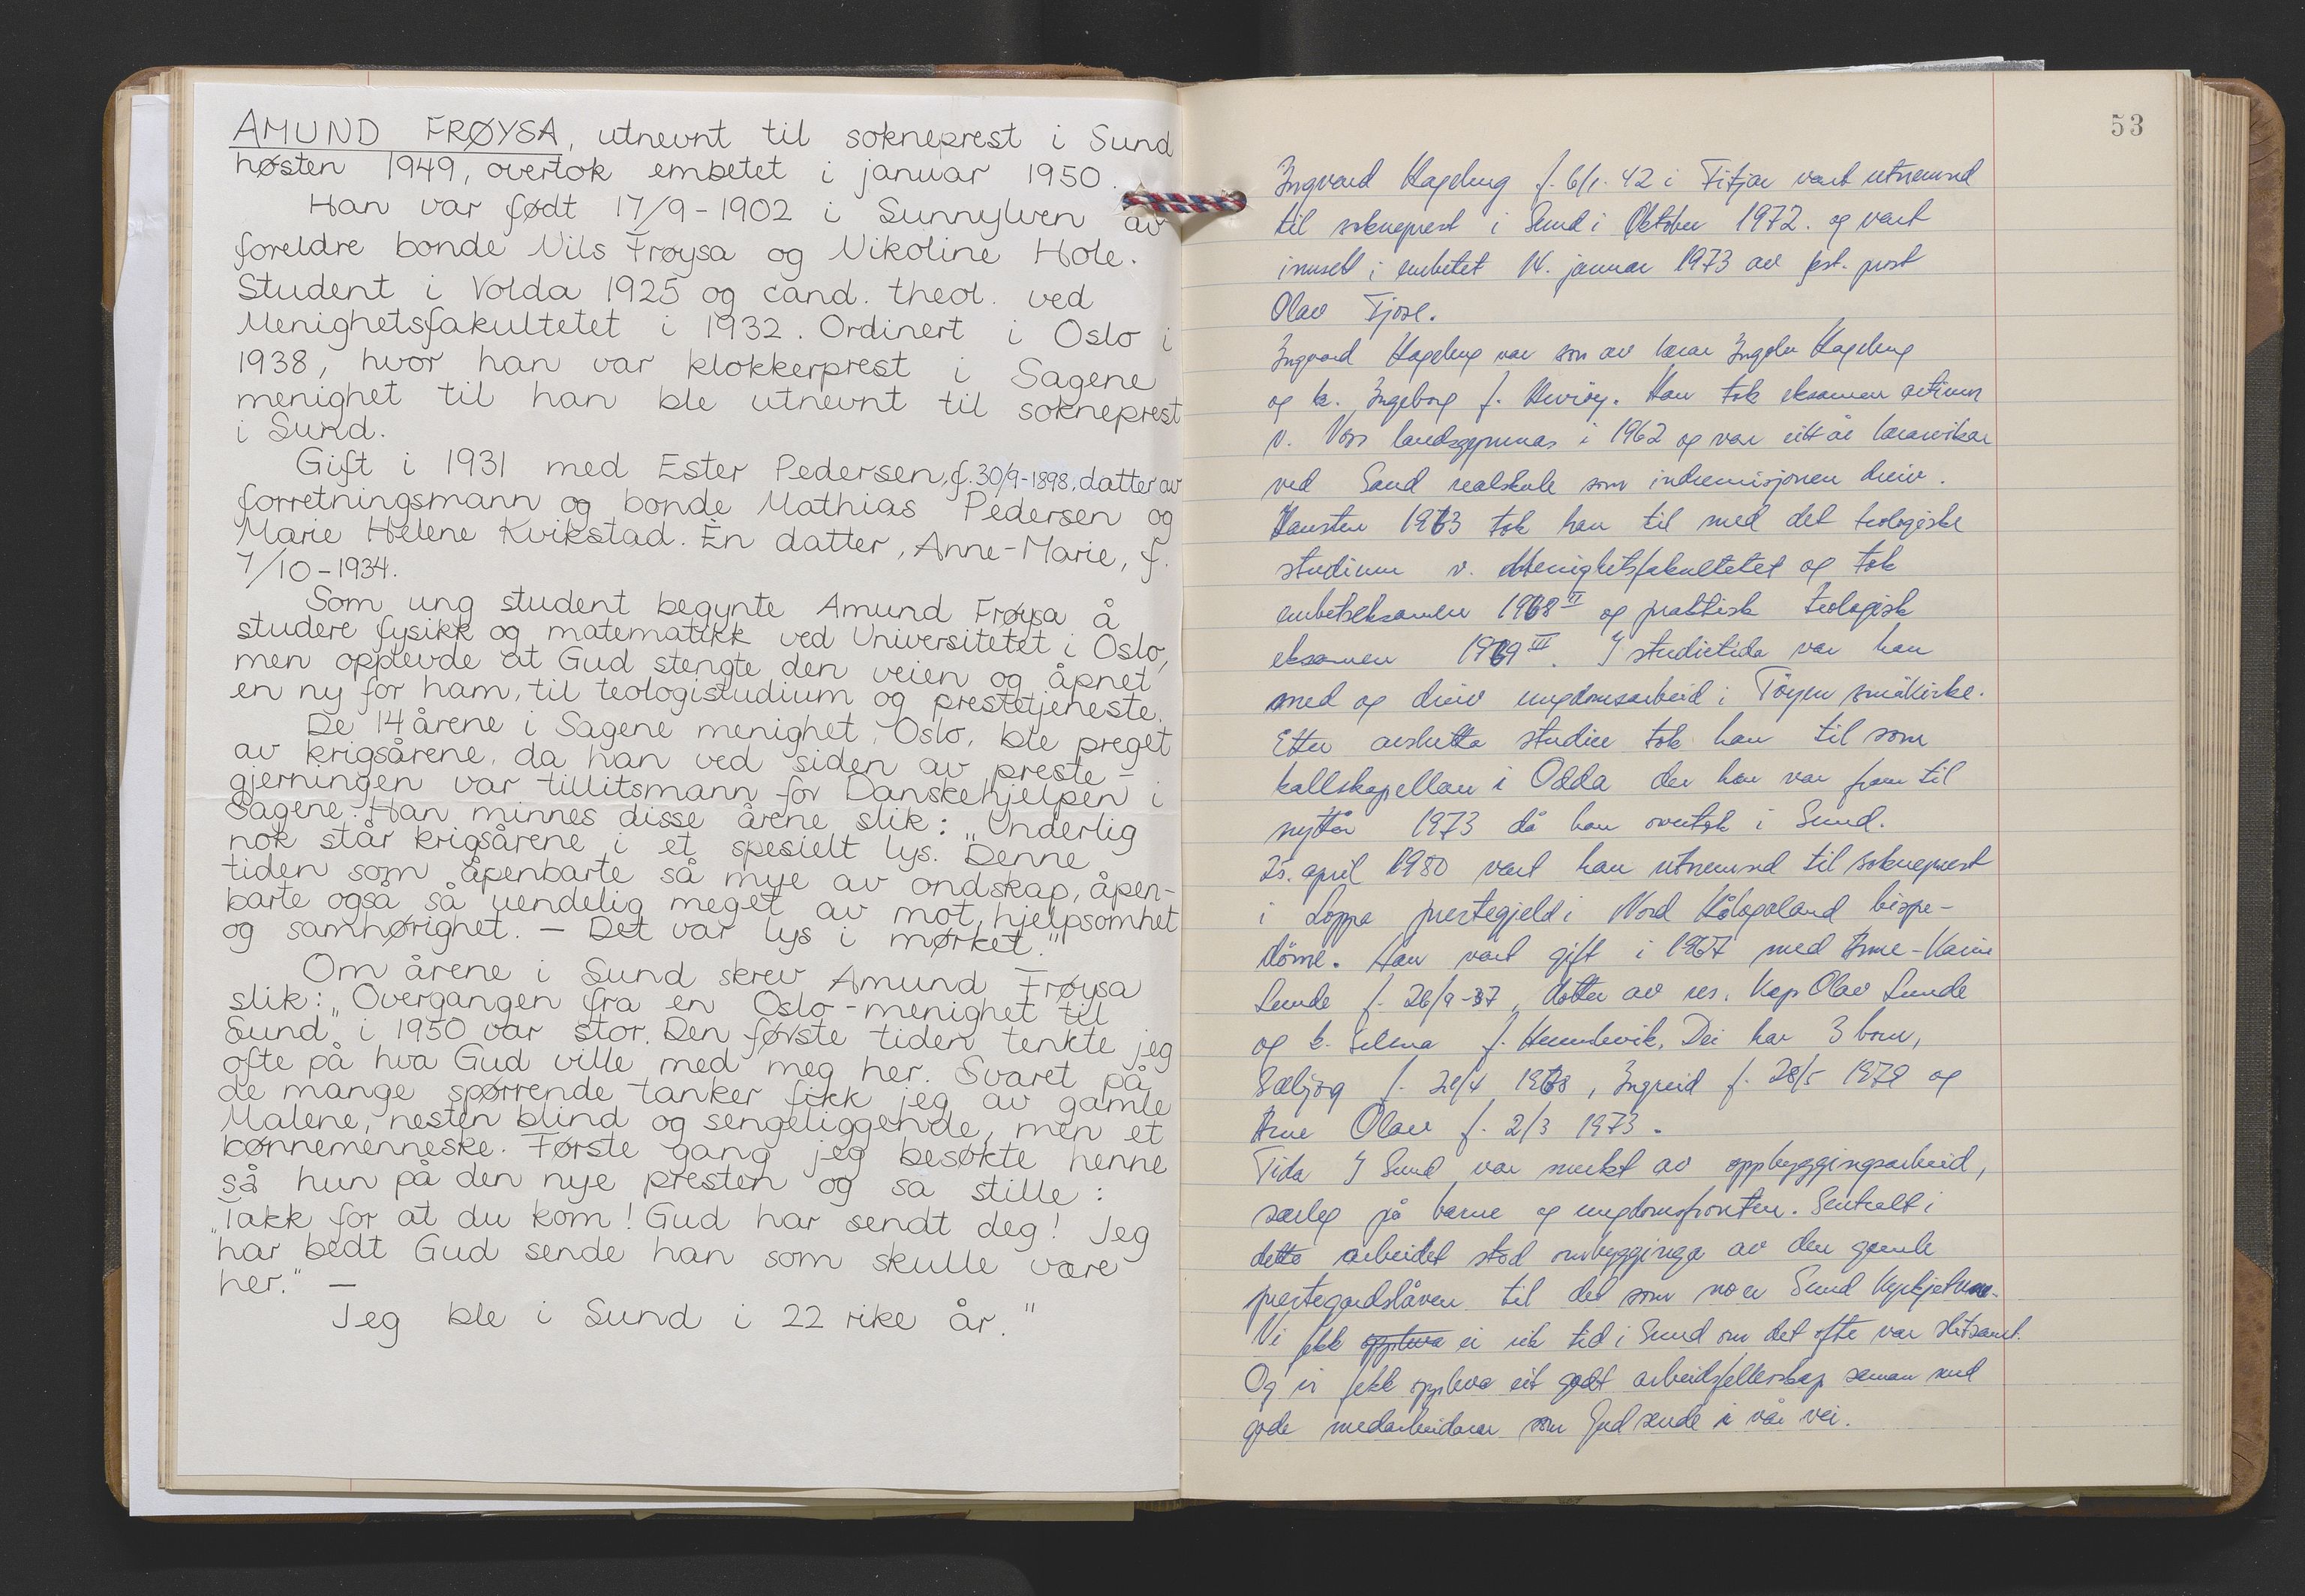 AMUND FRØYSA, utnevnt til sokneprest i Sund
høsten 1949, overtok embetet i januar 1950.
Han var født 17/9-1902 i Sunnylven av
foreldre bonde Nils Frøysa og Nikoline Hole.
Student i Volda 1925 og cand. theol. ved
Menighetsfakultetet i 1932. Ordinert i Oslo i
1938, hvor han var klokkerprest i Sagene
menighet til han ble utnevnt til sokneprest
i Sund.
Gift i 1931 med Ester Pedersen, f. 30/9-1898, datter av
forretningsmann og bonde Mathias Pedersen og
Marie Helene Kvikstad. En datter, Anne-Marie, f.
7/10-1934.
Som ung student begynte Amund Frøysa å
studere fysikk og matematikk ved Universitetet i Oslo,
men opplevde at Gud stengte den veien og åpnet
en ny for ham, til teologistudium og prestetjeneste.
De 14 årene i Sagene menighet, Oslo, ble preget
av krigsårene, da han ved siden av preste-
gjerningen var tillitsmann for Danskehjelpen i
Sagene. Han minnes disse årene slik: „Underlig
nok står krigsårene i et spesielt lys. Denne
tiden som åpenbarte så mye av ondskap, åpen-
barte også så uendelig meget av mot, hjelpsomhet
og samhørighet. – Det var lys i mørket."
Om årene i Sund skrev Amund Frøysa
slik: „Overgangen fra en Oslo-menighet til
Sund i 1950 var stor. Den første tiden tenkte jeg
ofte på hva Gud ville med meg her. Svaret på
de mange spørrende tanker fikk jeg av gamle
Malene, nesten blind og sengeliggende, men et
bønnemenneske. Første gang jeg besøkte henne
så hun på den nye presten og sa stille:
„Takk for at du kom! Gud har sendt deg! Jeg
har bedt Gud sende han som skulle være
her." –
Jeg ble i Sund i 22 rike år."
53
Ingvard Hagebug f. 6/1. 42 i Fitjar vart utnemnd
til sokneprest i Sund i Oktober 1972. og vart
innsett i embetet 14. januar 1973 av fst. prost
Olav Tjose.
Ingvard var son av lærar
og k. Ingeborg f. Han tok eksamen artium
v. Voss landsgymnas i 1962 og var eitt år lærarvikar
ved Sand realskule som indremisjonen dreiv.
Hausten 1963 tok han til med det teologiske
studium v. Menighetsfakultetet og tok
embetseksamen 1968 II og praktisk teologisk
eksamen 1969 III. I studietida var han
med og dreiv ungdomsarbeid i Tøyen småkirke.
Etter avslutta studier tok han til som
kallskapellan i Odda der han var fram til
nyttår 1973 då han overtok i Sund.
25. april 1980 vart han utnemnd til sokneprest
i Loppa prestegjeld i Nord Hålogaland bispe-
döme. Han vart gift i 1967 med Anne-Karin
Lunde f. 26/9-37, dotter av res. kap Olav Lunde
og k. Selma f. Dei har 3 born,
f. 1968, Ingreid f. 28/5 og
Arne Olav f. 2/3 1973.
Tida I Sund var merkt av oppbyggingsarbeid,
særleg på barne og ungdomsfronten. Sentralt i
dette arbeidet stod ombygginga av den gamle
prestegardslåven til det som no er Sund Kyrkjetun.
Vi fekk oppleva ei rik tid i Sund om det ofte var slitsamt.
Og vi fekk oppleva eit godt arbeidsfellesskap saman med
gode medarbeidarar som Gud sende i vår vei.